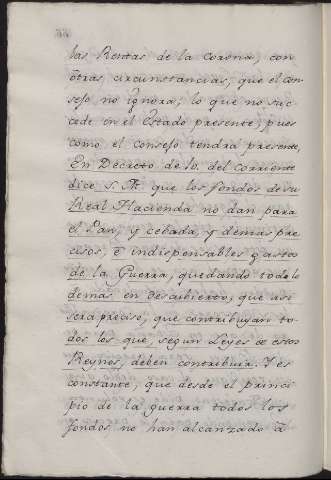 las Rentas de la Corona, con
otras circunstancias, que el Con-
sejo no ignora; lo que no suc-
cede en el Estado presente, pues
como el consejo tendrá presente,
En Decreto de 10. del corriente
dice S. M. que los fondos de su
Real Hacienda no dan para
el Pan, y cebada, y demas pre
cisos, é indispensables gastos
de la Guerra, quedando todo lo
demas en descubierto, que asi
sera preciso, que contribuyan to-
dos los que, segun Leyes de estos
Reynos, deben contribuir. Y es
constante, que desde el princi-
pio de la guerra todos los
fondos no han alcanzado á